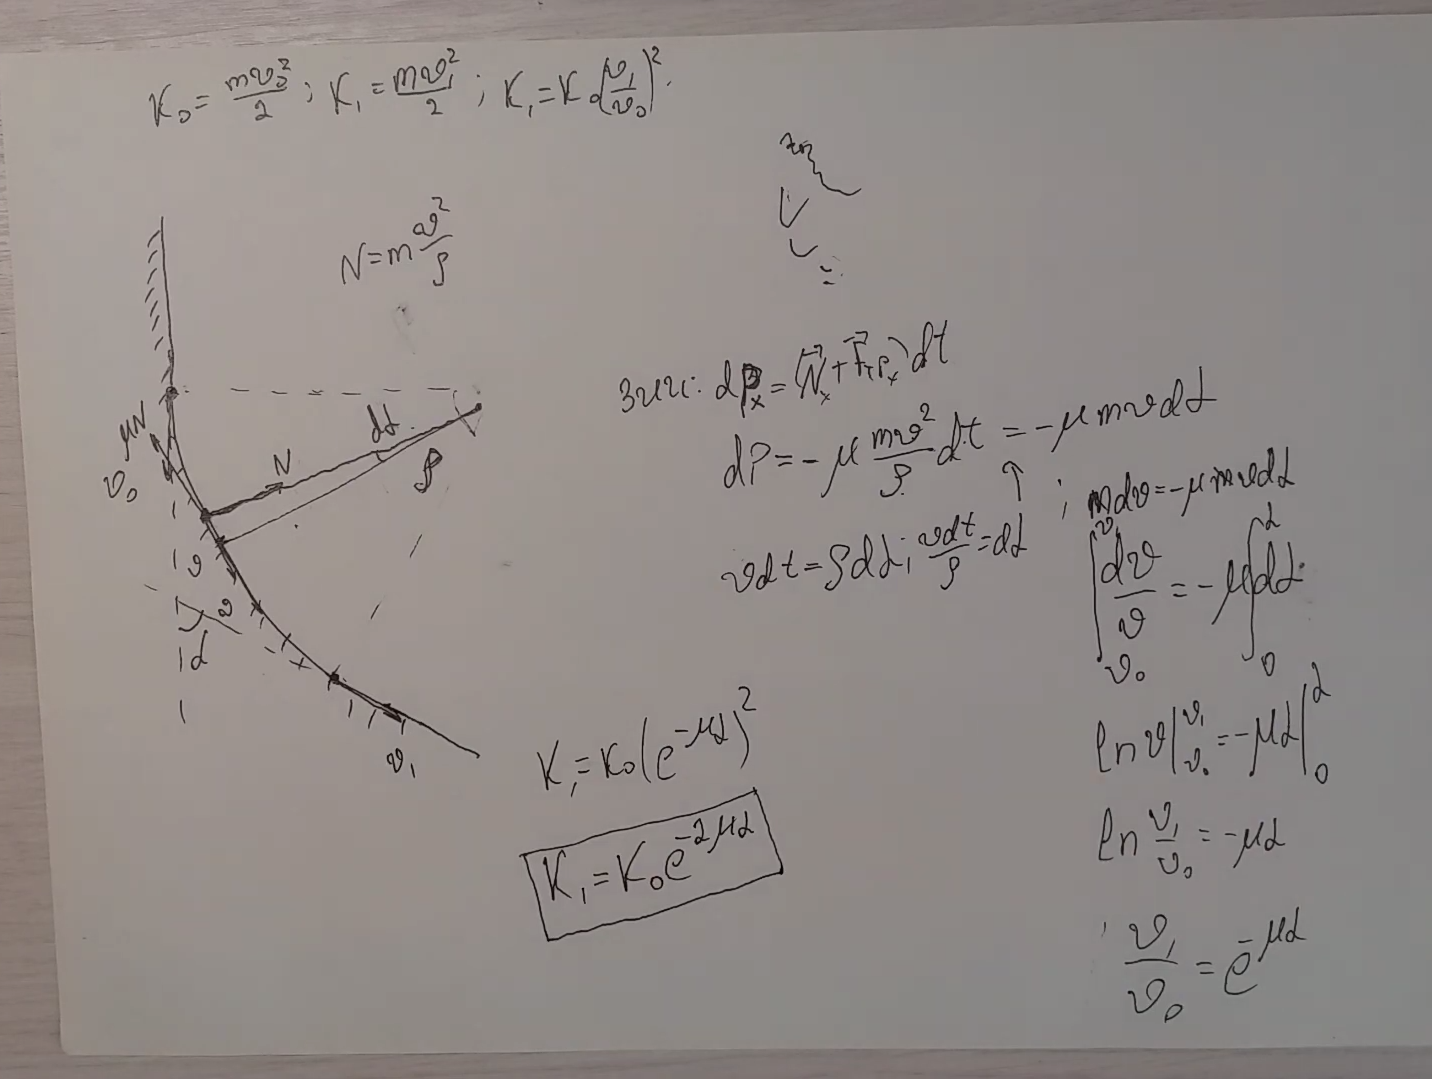 K₀ = mv₀²/2 ; K₁ = mv₁²/2 ; K₁ = K₀(v₁/v₀)².
N = m v²/ρ
μN
v₀
N
dα
ρ
v
α
v₁
ЗИИ: dPₓ = (N⃗ₓ + F⃗трₓ) dt
dP = -μ mv²/ρ dt = -μmvdα
vdt = ρdα ; vdt/ρ = dα
; mdv = -μmvdα
∫_{v₀}^{v₁} dv/v = -μ∫_0^α dα
ln v |_{v₀}^{v₁} = -μα |_0^α
ln v₁/v₀ = -μα
v₁/v₀ = e^{-μα}
K₁ = K₀(e^{-μα})²
K₁ = K₀e^{-2μα}